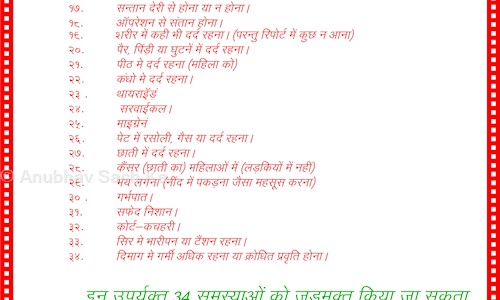 १७. सन्तान देरी से होना या न होना।
१८. ऑपरेशन से संतान होना।
१६. शरीर में कही भी दर्द रहना। (परन्तु रिपोर्ट में कुछ न आना)
२०. पैर, पिंडी या घुटनें में दर्द रहना।
२१. पीठ मे दर्द रहना (महिला को)
२२. कंधो मे दर्द रहना।
२३. थायराईड़
२४. सरवाईकल।
२५. माइग्रेनं
२६. पेट में रसोली, गैस या दर्द रहना।
२७. छाती में दर्द रहना।
२८. कैंसर (छाती का) महिलाओं में (लड़कियों में नहीं)
२६. भय लगना (नींद में पकड़ना जैसा महसूस करना)
३०. गर्भपात।
३१. सफेद निशान।
३२. कोर्ट–कचहरी।
३३. सिर मे भारीपन या टैंशन रहना।
३४. दिमाग मे गर्मी अधिक रहना या क्रोधित प्रवृति होना।
इन उपर्यक्त 34 समस्याओं को जड़मक्त किया जा सकता